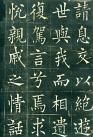 請息交以絕遊
世與我而相遺
復駕言兮焉求
悅親戚之情話